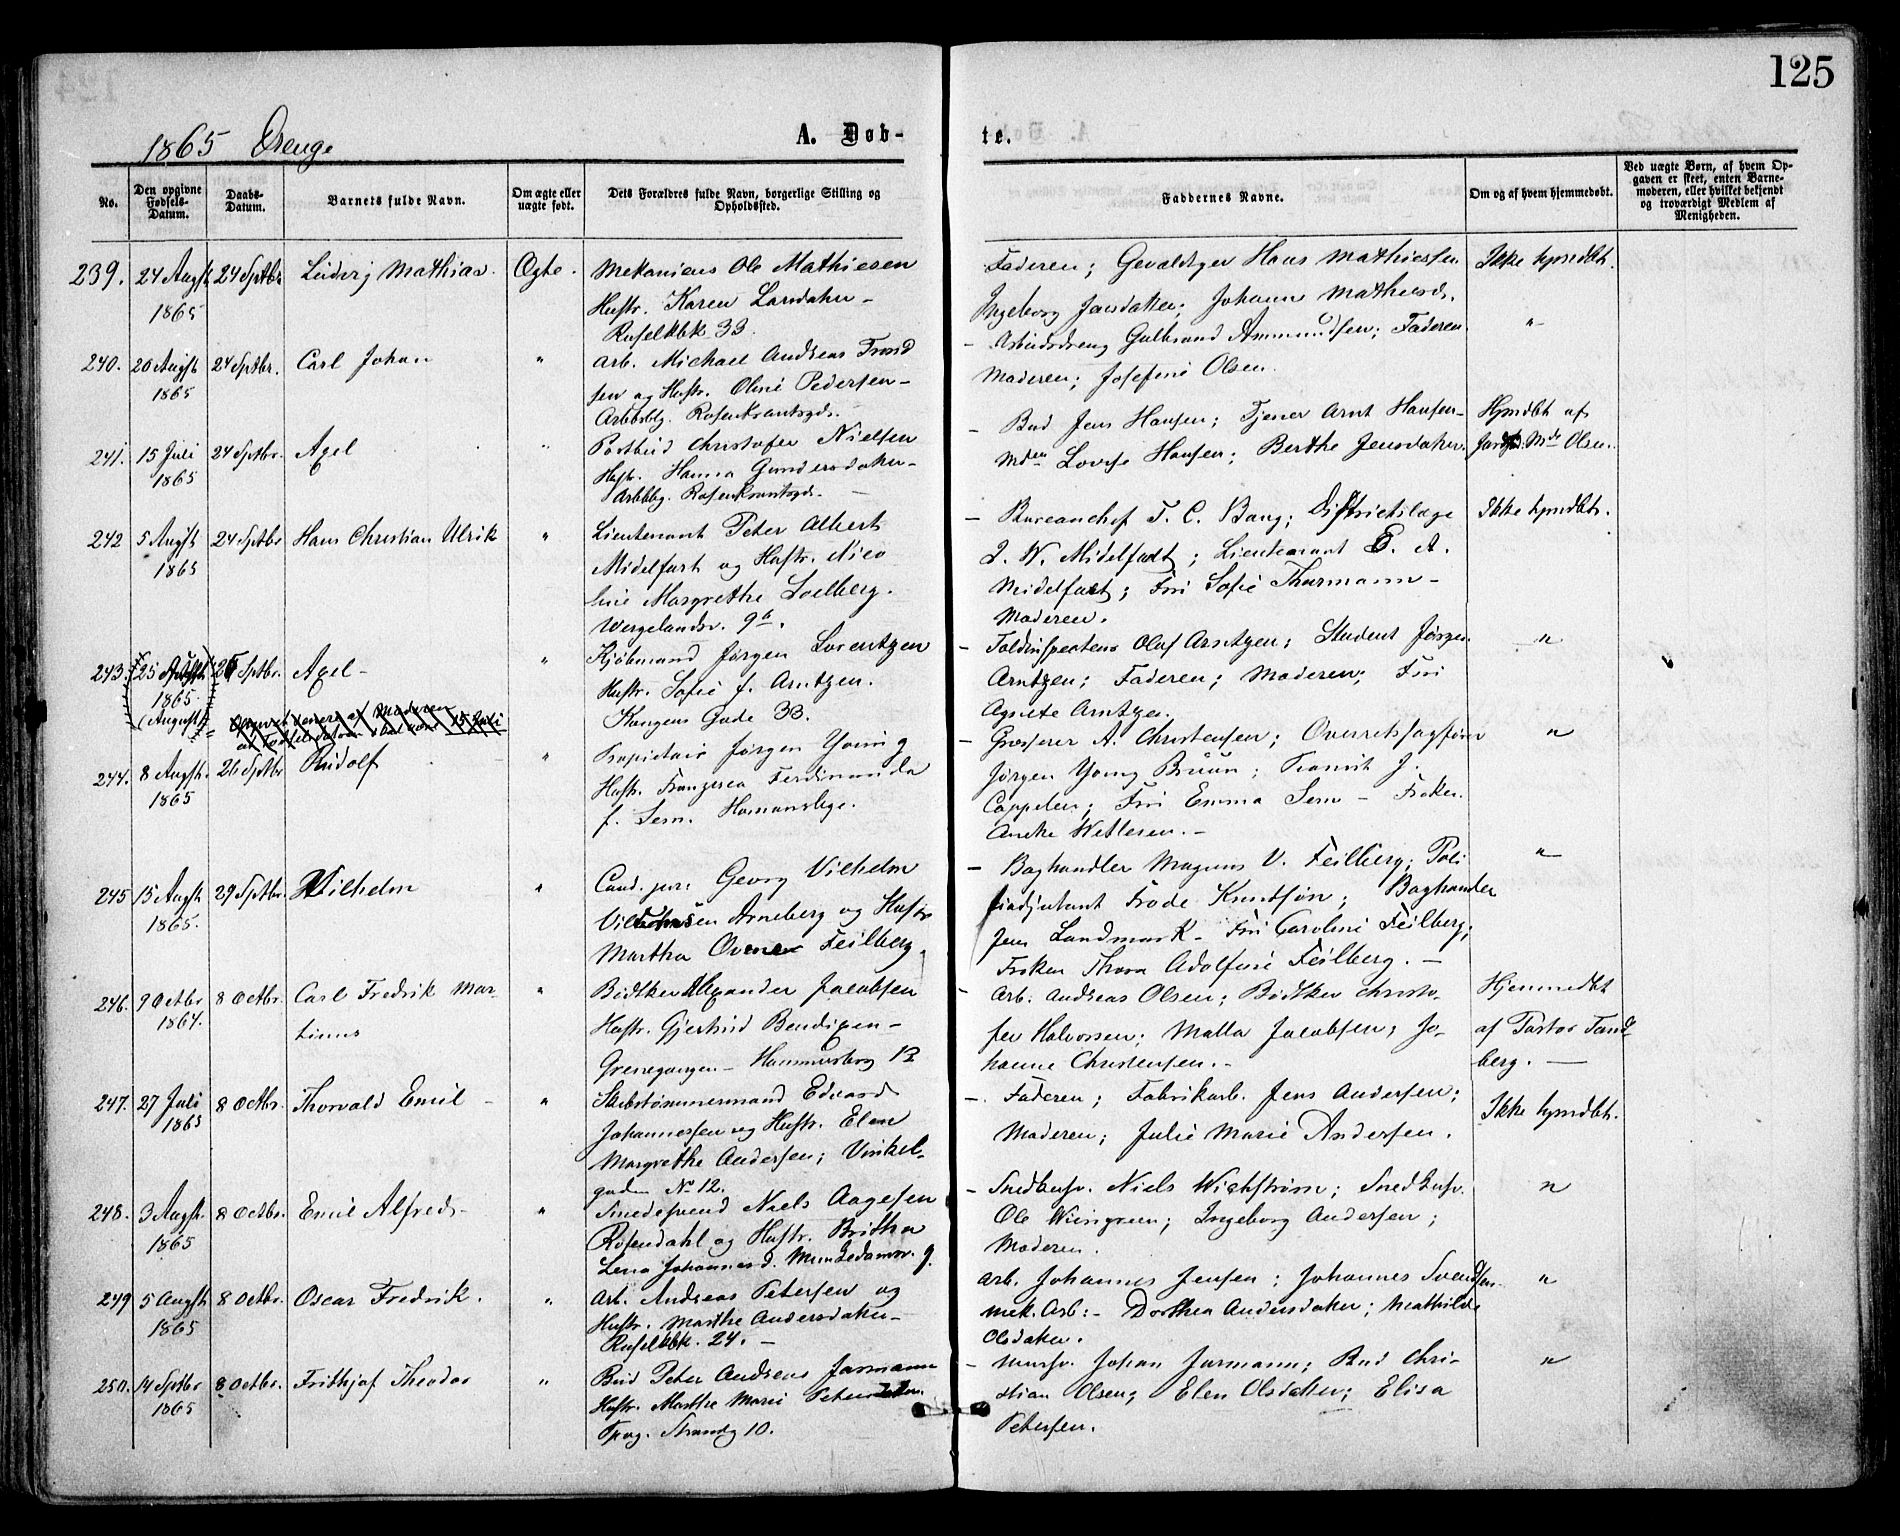 125
1865 Drenge
A. Døb-
te.
No.
Den opgivne Fødsels-Datum.
Daabs-Datum.
Barnets fulde Navn.
Om ægte eller uægte født.
Dets Forældres fulde Navn, borgerlige Stilling og Opholdssted.
Faddernes Navne.
Om og af hvem hjemmedøbt.
Ved uægte Børn, af hvem Op-
gaven er skeet, enten Barne-
moderen, eller hvilket bekjendt
og troværdigt Medlem af
Menigheden.
239. 24 Augst 24 Sptbr Ludvig Mathias. Ægte. Mekanicus Ole Mathiesen
1865 Hustr. Karen Larsdatter -
Ruselkbk 33.
Faderen; Gevaldiger Hans Mathiessen Ikke hjmdbt.
Ingeborg Jansdatter; Johann Mathiesd.
240. 20 Augst 24 Sptbr. Carl Johan " Arb. Michael Andreas Trond
1865 sen og Hustr. Oline Pedersen -
Arbbolg. Rosenkrantsgd.
- Arbeidsdreng Gulbrand Ammundsen; Faderen "
Moderen; Josefine Olsen.
241. 15 Juli 24 Sptbr. Axel " Postbud Christofer Nielsen
1865 Hustr. Hanna Gundersdatter -
Arbblg. Rosenkrantsgd. -
- Bud Jens Hansen; Tjener Arnt Hansen - Hjmdbt af
Mdm Lovise Hansen; Berthe Jensdatter. Jordm. Md Olsen.
242 5 Augst 24 Sptbr Hans Christian Ulrik " Lieutenant Peter Albert
1865 Midelfart og Hustr. Nico
line Margrethe Soelberg.
Wergelandsv. 9b.
- Bureauchef T. C. Bang; Districtslæge Ikke hjmdbt.
J. W. Midelfart; Lieutenant E. A.
Midelfart; Fru Sofie Thurmann -
Moderen.
243. 25 Augst 26 Sptbr. Axel - " Kjøbmand Jørgen Lorentzen
1865. Hustr. Sofie f. Arntzen.
(August) Kongens Gade 33.
Opgivet senere af Moderen
at Fødselsdatum skal være 15 Juli
- Toldinspecteur Olaf Arntzen; Student Jørgen "
Arntzen; Faderen; Moderen; Fru
Agnete Arntzen.
244. 8 Augst. 26 Sptbr Rudolf " Propietair Jørgen Young
1865 Hustr. Franzisca Ferdinanda
f. Sem. Homansbye.
- Grosserer A. Christensen; Overretssagfører "
Jørgen Young Bruun; Transit J.
Cappelen; Fru Emma Sem - Frøken
Anette Wettesen. -
245 15 Augst 29 Sptbr. Vilhelm " Cand. jur. Georg Vilhelm
1865. Vilhelmsen Arneberg og Hustr
Martha Ovene Feilberg.
- Boghandler Magnus V. Feilberg; Poli "
tiadjutant Frode Knudssøn; Boghandler
Jens Landmark - Fru Caroline Feilberg;
Frøken Thora Adolfine Feilberg. -
246. 9 Octbr 8 Octbr. Carl Fredrik Mar- " Bødtker Alexander Jacobsen
1864. tinus Hustr. Gjertrud Bendixen -
Grensegangen - Hammersborg 13
- Arb. Andreas Olsen; Bødtker Christo- Hjemmedbt
fer Halvorsen; Malla Jacobsen; Jo- af Pastor Tand
hanne Christensen. - berg. -
247. 27 Juli 8 Octbr. Thorvald Emil - " Skibstømmermand Edvard
1865 Johannessen og Hustr. Elen
Margrethe Andersen; Vinkel-
gaden No 12.
- Faderen; Fabrikarb. Jens Andersen; Ikke hjmdbt.
Moderen; Julie Marie Andersen.
248. 3 Augst. 8 Octbr. Emil Alfred - " Smedesvend Niels Aagesen
1865 Rosendahl og Hustr. Britha
Lena Johannesd. Munkedamsv. 9.
- Snedkersv. Niels Wickstrøm; Snedkersv. "
Ole Wiingreen; Ingeborg Andersen;
Moderen.
249 5 Augst 8 Octbr. Oscar Fredrik. " Arb. Andreas Petersen og
1865 Hustr. Marthe Andersdatter -
Ruselkbk. 24. -
Arb. Johannes Jensen; Johannes Svendsen "
mek. Arb: - Dorthea Andersdatter; Mathilde
Olsdatter.
250. 14 Sptbr 8 Octbr. Frithjof Theodor " Bud Peter Andreas Jarmann
1865 Hustr. Marthe Marie Petersen
Tpvg. Strandg 10.
- Mursv. Johan Jarmann; Bud Chri- "
stian Olsen; Elen Olsdatter; Elisa
Petersen.